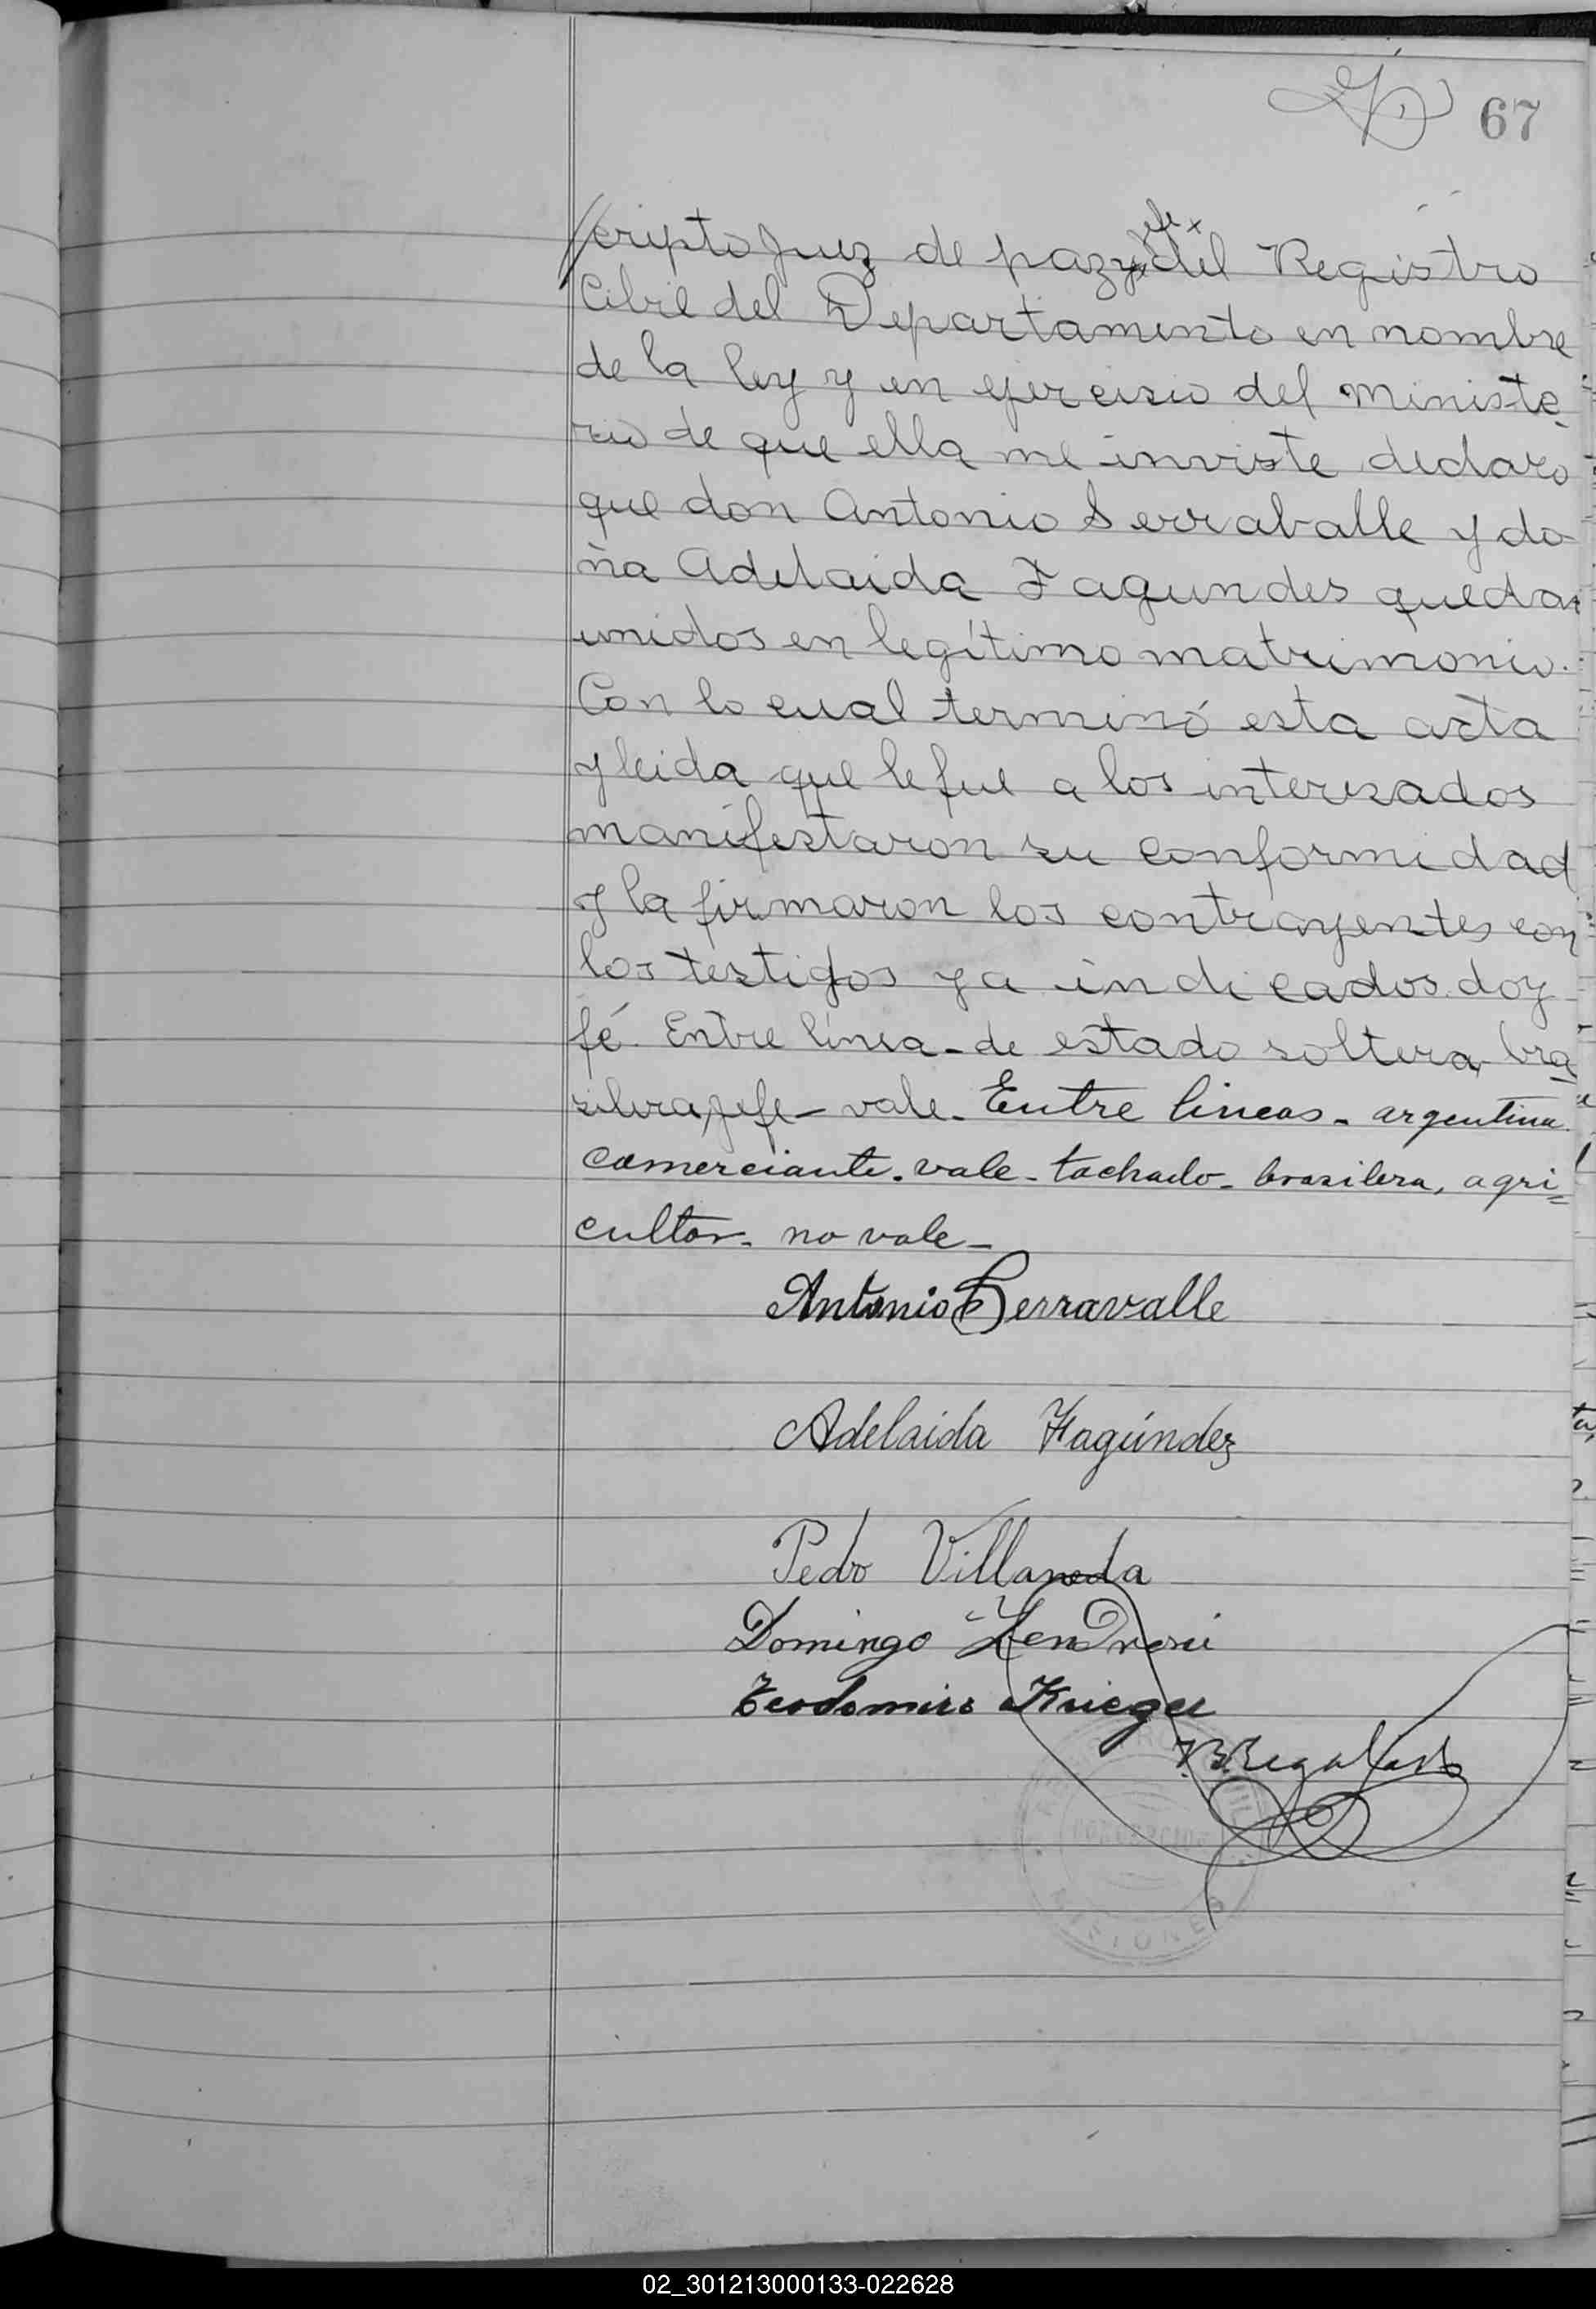 67
cripto Juez de paz y jefe del Registro
Cibil del Departamento en nombre
de la ley y en ejercisio del Ministe
rio de que ella me inviste declaro
que don Antonio Serraballe y do
ña Adelaida Fagundes quedan
unidos en legítimo matrimonio.
Con lo cual terminó esta acta
y leida que le fue a los interezados
manifestaron su conformidad
y la firmaron los contrayentes con
los testigos ya indicados doy
fé. Entre línea - de estado soltera bra
zilera, jefe - vale. Entre lineas - argentina
comerciante. vale - tachado - brasilera, agri=
cultor - no vale -
Antonio Serravalle
Adelaida Fagúndez
Pedro Villaneda
Domingo
Teodomiro Krieger
MISIONES
02_301213000133-022628